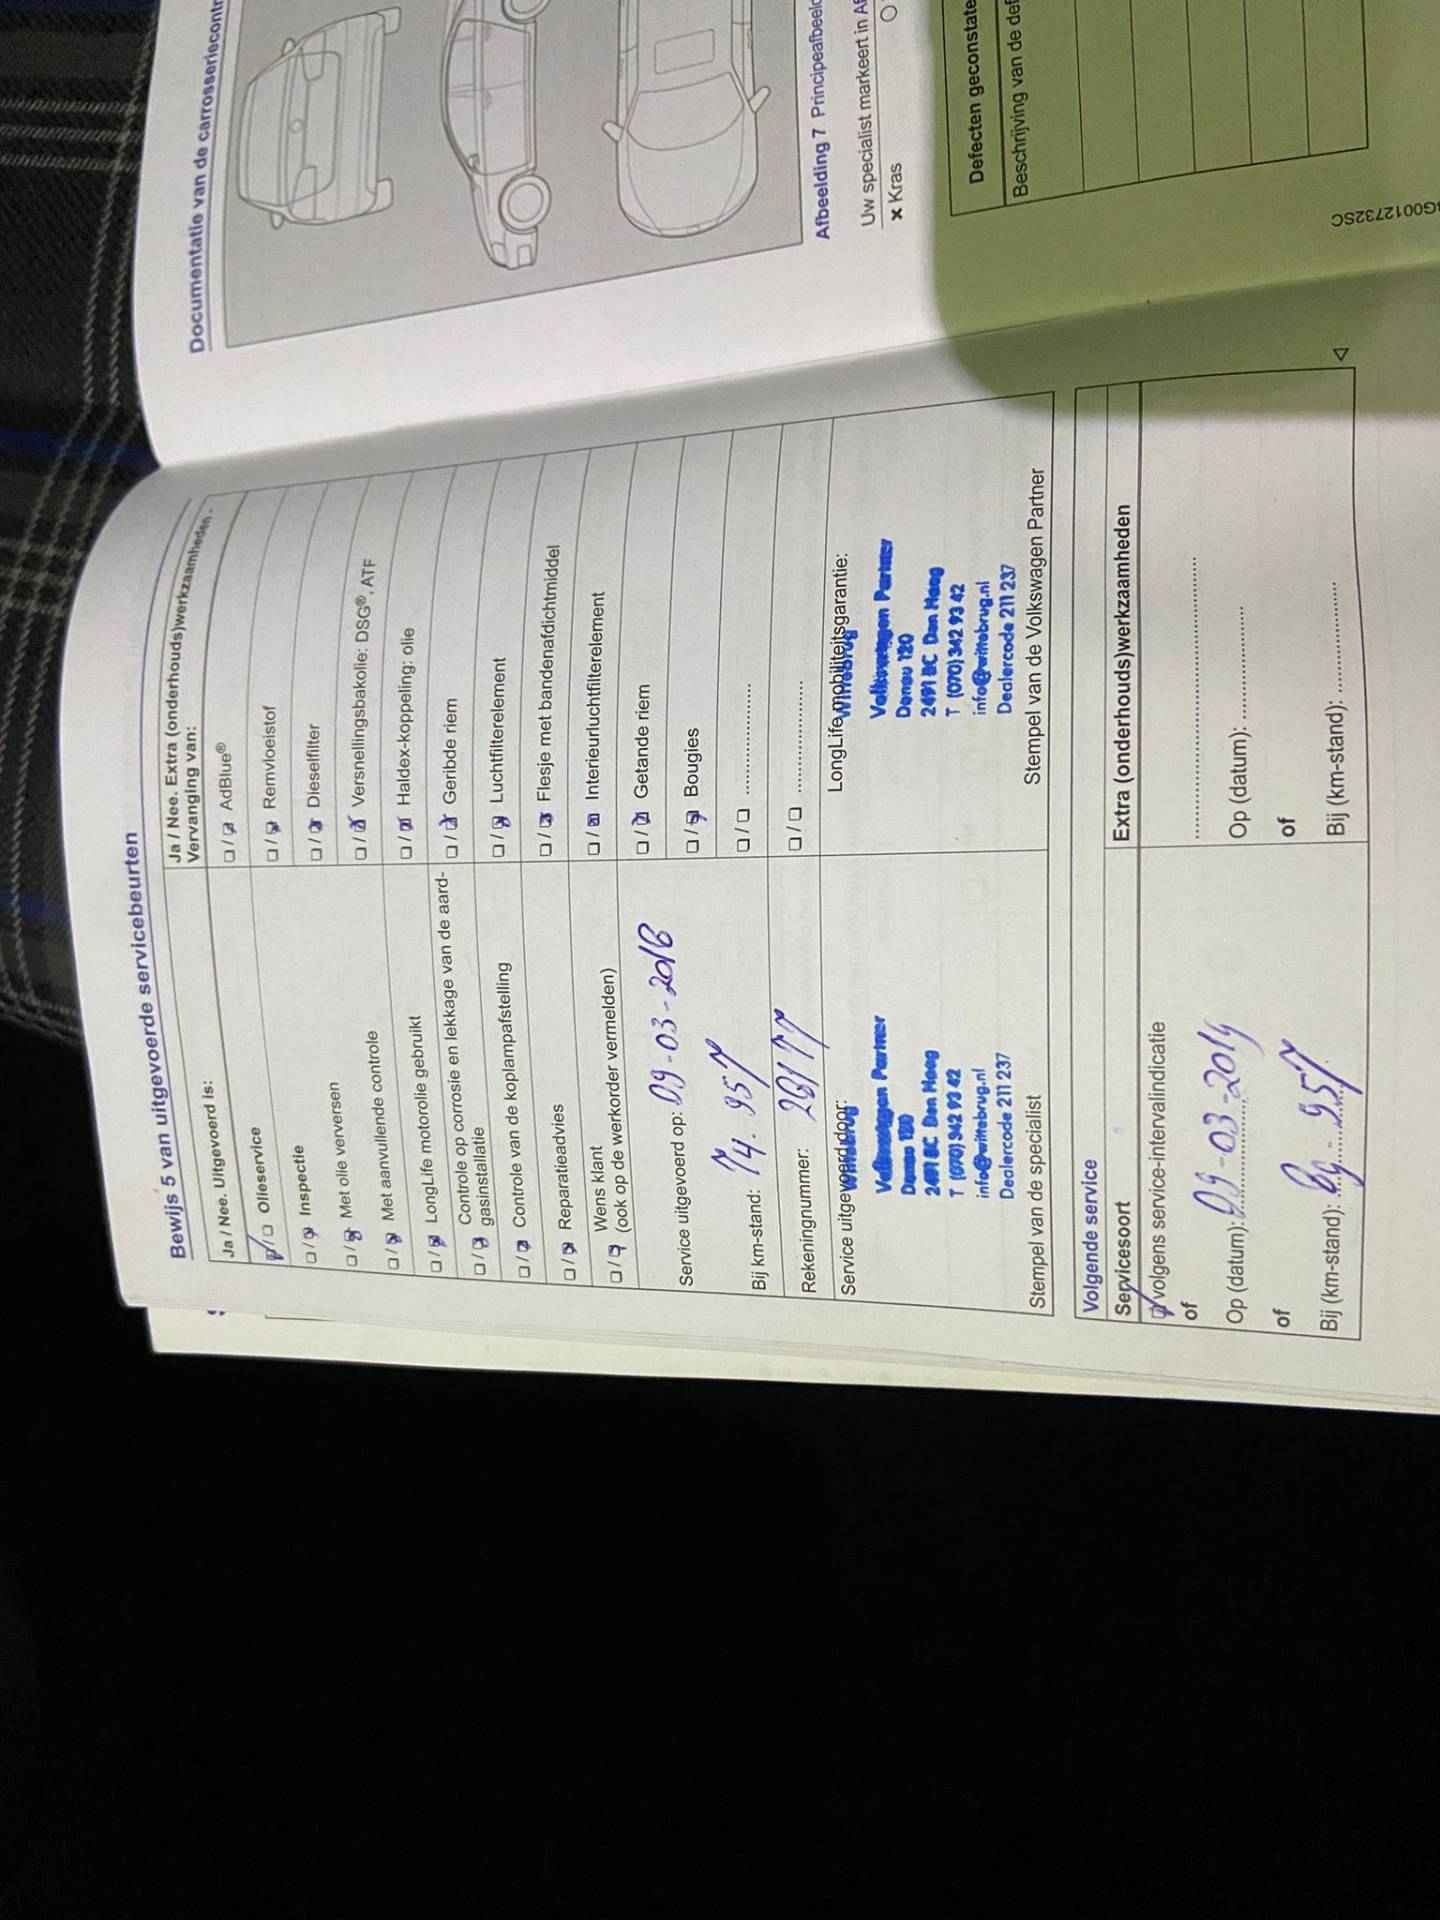 Bewijs 5 van uitgevoerde servicebeurten
Ja / Nee. Uitgevoerd is:
Olieservice
Inspectie
Met olie verversen
Met aanvullende controle
LongLife motorolie gebruikt
Controle op corrosie en lekkage van de aard-
gasinstallatie
Controle van de koplampafstelling
Reparatieadvies
Wens klant
(ook op de werkorder vermelden)
Service uitgevoerd op: 09-03-2018
Bij km-stand: 74.957
Rekeningnummer: 26177
Service uitgevoerd door:
Wittebrug
Volkswagen Partner
Donau 120
2491 BC Den Haag
T (070) 342 93 42
info@wittebrug.nl
Dealercode 211 237
Stempel van de specialist
Ja / Nee. Extra (onderhouds)werkzaamheden -
Vervanging van:
AdBlue®
Remvloeistof
Dieselfilter
Versnellingsbakolie: DSG®, ATF
Haldex-koppeling: olie
Geribde riem
Luchtfilterelement
Flesje met bandenafdichtmiddel
Interieurluchtfilterelement
Getande riem
Bougies
LongLife mobiliteitsgarantie:
Wittebrug
Volkswagen Partner
Donau 120
2491 BC Den Haag
T (070) 342 93 42
info@wittebrug.nl
Dealercode 211 237
Stempel van de Volkswagen Partner
Volgende service
Servicesoort
volgens service-intervalindicatie
of
Op (datum): 09-03-2019
of
Bij (km-stand):
Extra (onderhouds)werkzaamheden
Op (datum):
of
Bij (km-stand):
Documentatie van de carrosseriecontr
Afbeelding 7 Principeafbeeld
Uw specialist markeert in
x Kras
Defecten geconstate
Beschrijving van de def
G0012732SC